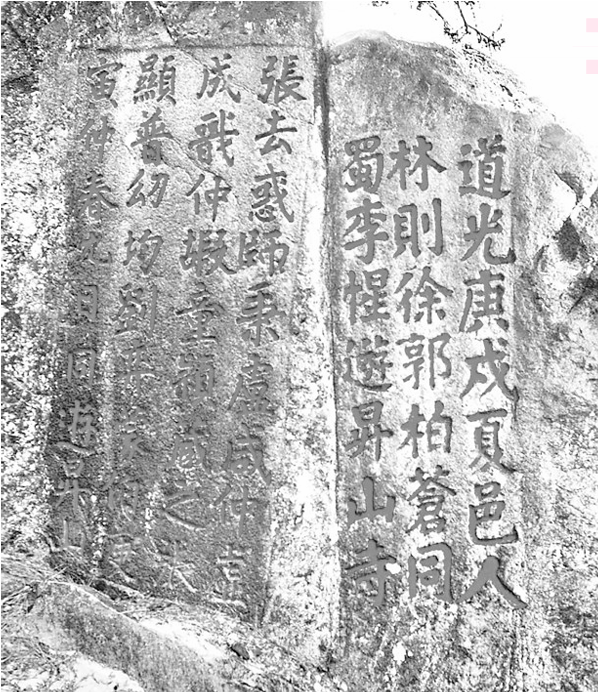 道光庚戌夏邑人
林則徐郭柏蒼同
蜀李惺遊昇山寺
張去惑師秉盧咸仲
成戩仲嘏章之
顯普幼均劉
寅仲春九日同遊昇山